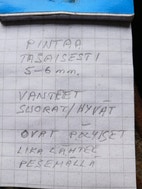 PINTAA
TASAISESTI
5-6 mm.
VANTEET
SUORAT/HYVÄT
OVAT PÖLYISET
LIKA LÄHTEE
PESEMÄLLÄ